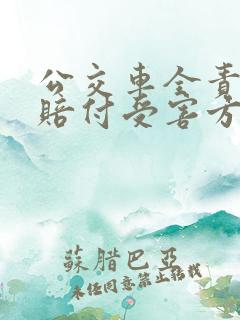 公交车全责
赔付受害方
蘇腊巴亞
未经同意禁止转载